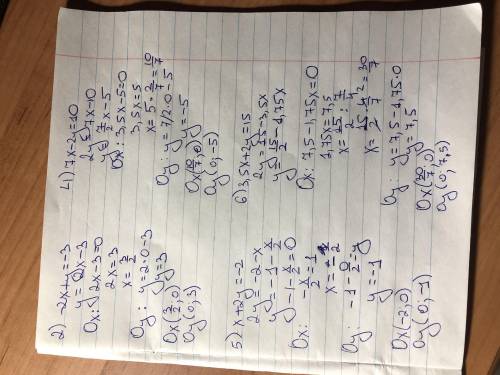 2) -2x+y=-3
y=2x-3
Ox: 2x-3=0
2x=3
x=3/2
Oy: y=2·0-3
y=3
Ox(3/2, 0)
Oy(0; 3)
4) 7x-2y=10
2y=7x-10
y=7/2x-5
Ox: 3,5x-5=0
3,5x=5
x=5·2/7=10/7
Oy: y=7/2·0-5
y=-5
Ox(10/7, 0)
Oy(0; -5)
5) x+2y=-2
2y=-2-x
y=-1-x/2
Ox: -1-x/2=0
-x/2=1
x=-2
Oy: -1-0/2=y
y=-1
Ox(-2,0)
Oy(0; -1)
6) 3,5x+2y=15
2y=15-3,5x
y=15/2-1,75x
Ox: 7,5-1,75x=0
1,75x=7,5
x=15/2:7/4
x=15/2·4/7=30/7
Oy: y=7,5-1,75·0
y=7,5
Ox(30/7, 0)
Oy(0; 7,5)